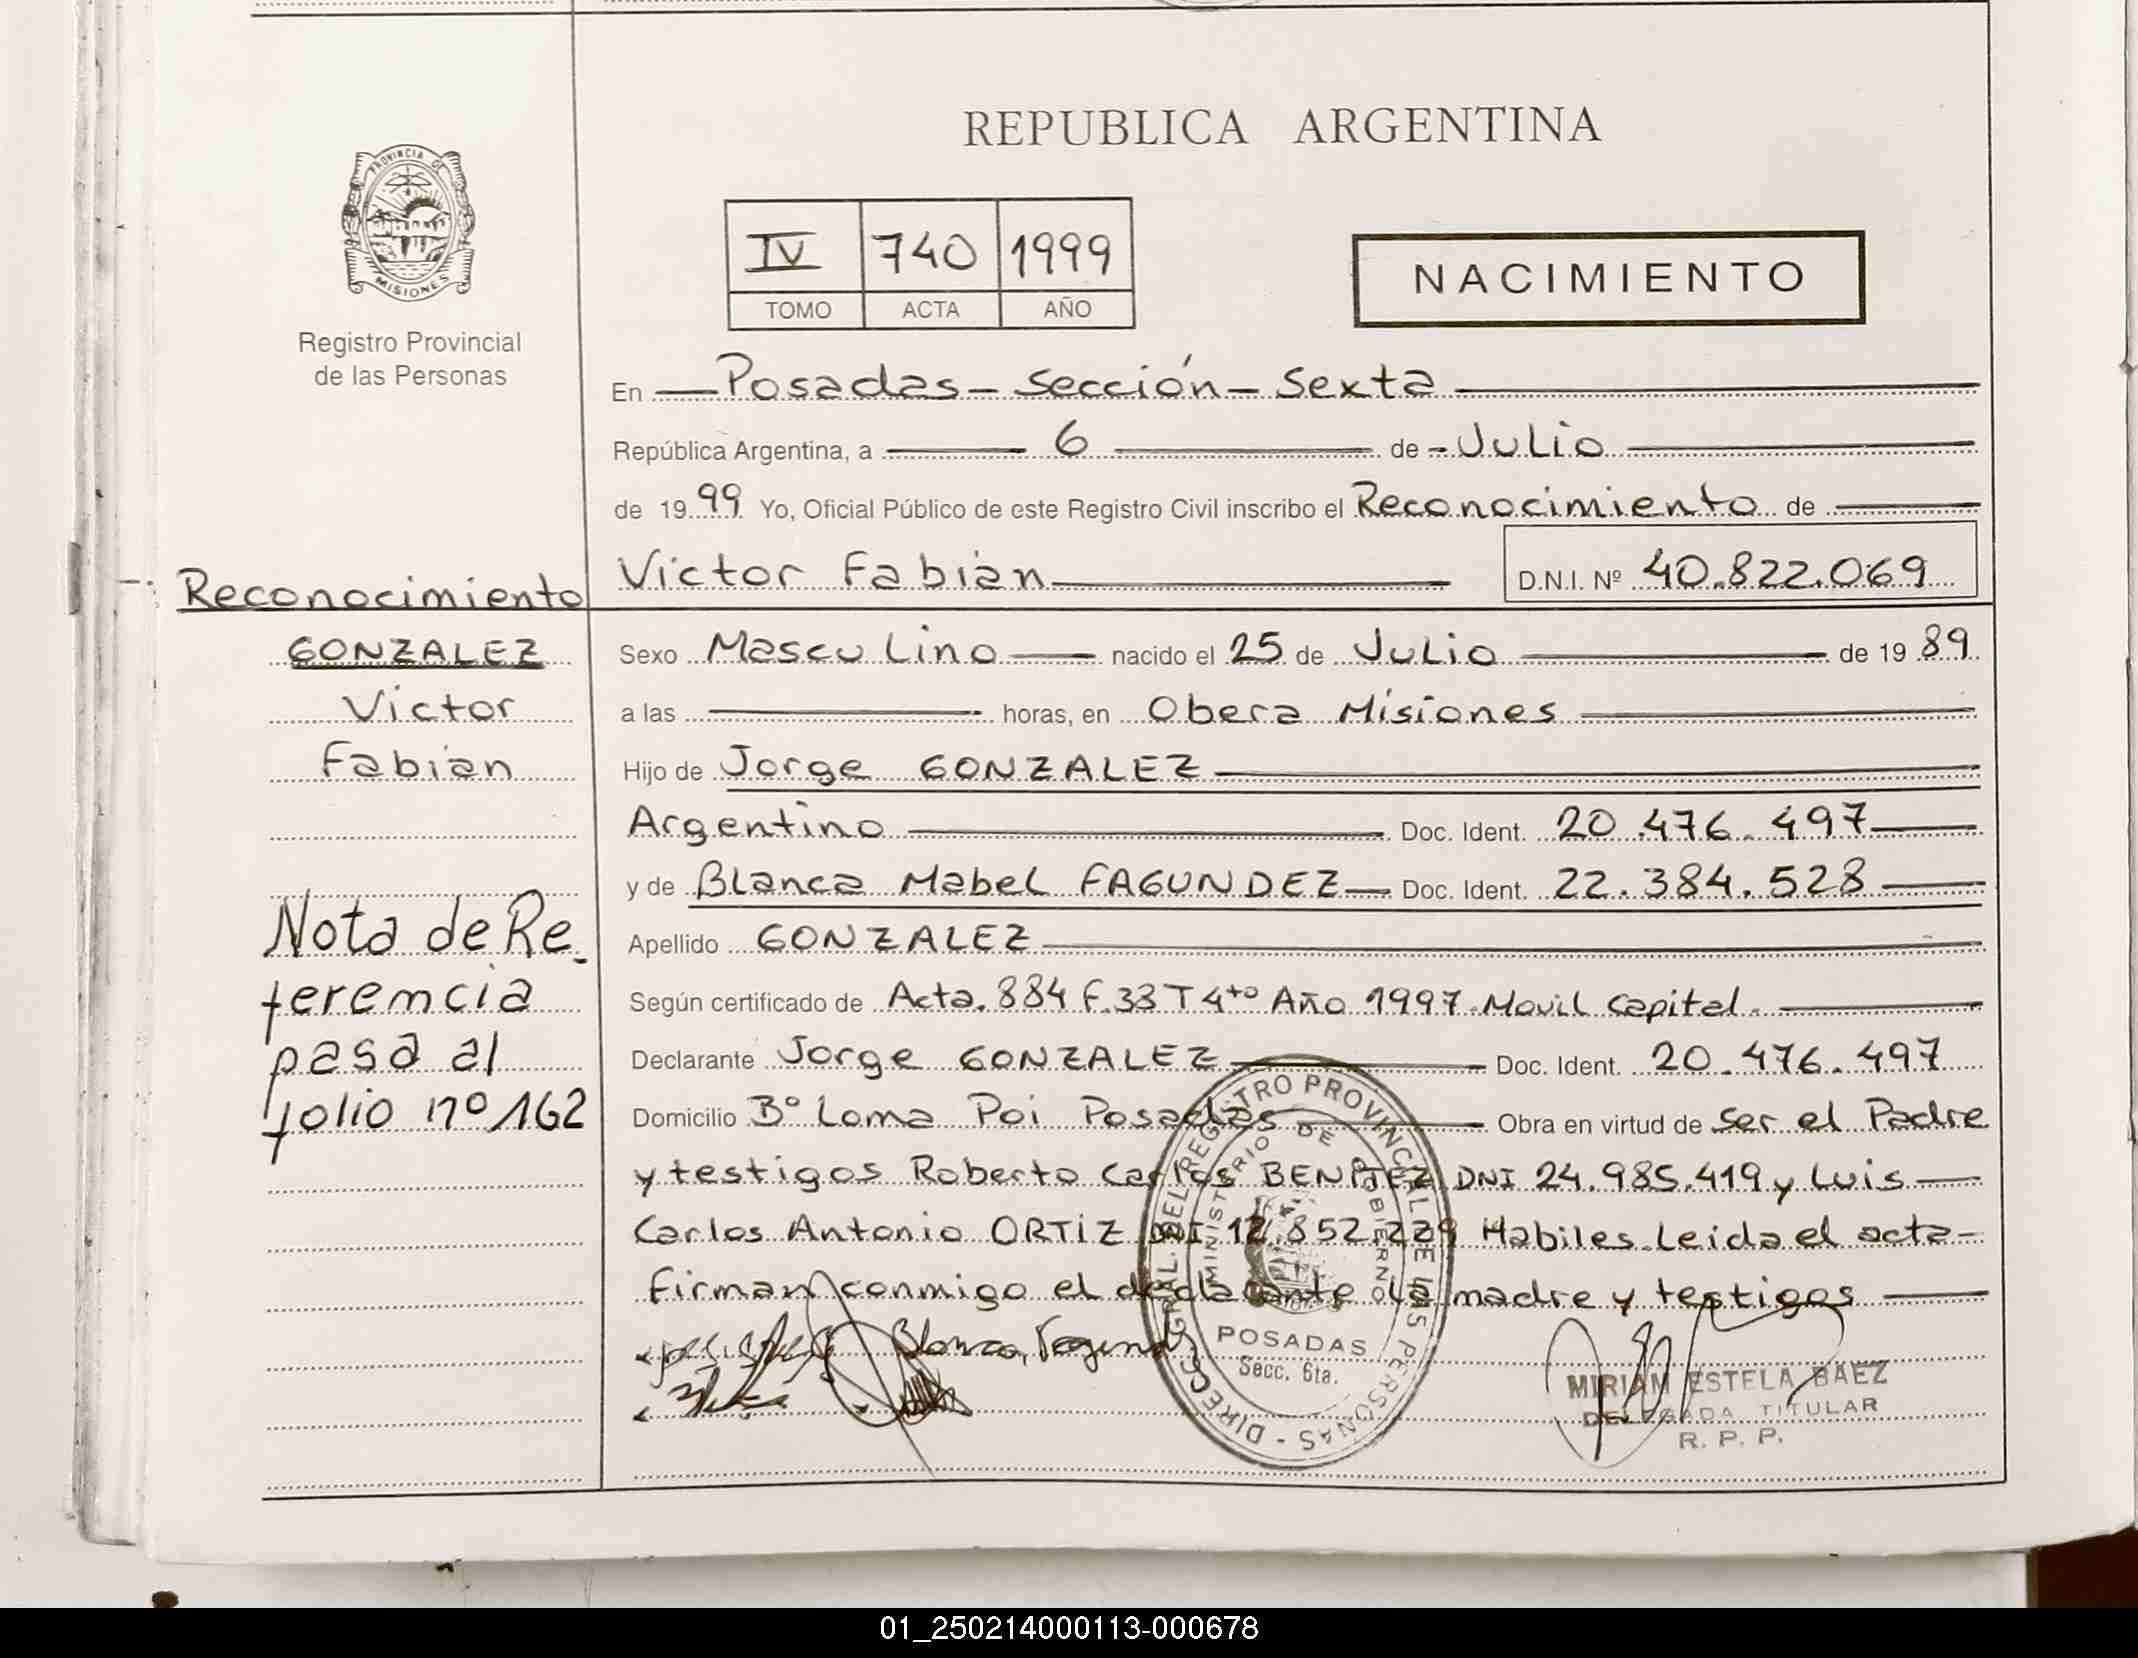 REPUBLICA ARGENTINA
PROVINCIA DE
MISIONES
Registro Provincial
de las Personas
IV 740 1999
TOMO ACTA AÑO
NACIMIENTO
En Posadas - Sección - Sexta
República Argentina, a 6 de - Julio
de 19 99 Yo, Oficial Público de este Registro Civil inscribo el Reconocimiento de
Victor Fabian D.N.I. Nº 40.822.069
Reconocimiento
GONZALEZ
Victor
Fabian
Nota de Re_
ferencia
pasa al
folio nº 162
Sexo Masculino nacido el 25 de Julio de 19 89
a las horas, en Obera Misiones
Hijo de Jorge GONZALEZ
Argentino Doc. Ident. 20.476.497
y de Blanca Mabel FAGUNDEZ Doc. Ident. 22.384.528
Apellido GONZALEZ
Según certificado de Acta. 884 F.33 T 4to Año 1997. Movil Capital.
Declarante Jorge GONZALEZ Doc. Ident. 20.476.497
Domicilio Bº Loma Poi Posadas Obra en virtud de ser el Padre
y testigos Roberto Carlos BENITEZ DNI 24.985.419 y Luis
Carlos Antonio ORTIZ DNI 12.852.229 Habiles. Leida el acta
Firman conmigo el declarante la madre y testigos
Blanca
DIRECC. GRAL. DEL REGISTRO PROVINCIAL DE LAS PERSONAS -
MINISTERIO DE GOBIERNO
POSADAS
Secc. 6ta.
MIRIAM ESTELA BAEZ
DELEGADA TITULAR
R. P. P.
01_250214000113-000678